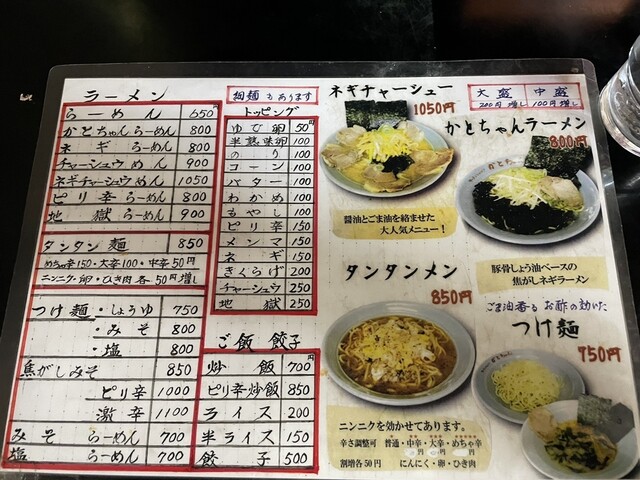 ラーメン
らーめん 650円
かとちゃんらーめん 800
ネギらーめん 800
チャーシュウめん 900
ネギチャーシュウめん 1050
ピリ辛らーめん 800
地獄らーめん 900
タンタン麺 850
めちゃ辛150・大辛100・中辛50円
ニンニク・卵・ひき肉各50円増し
つけ麺・しょうゆ 750
・みそ 800
・塩 800
焦がしみそ 850
ピリ辛 1000
激辛 1100
みそらーめん 700
塩らーめん 700
細麺もあります
トッピング
ゆで卵 50円
半熟味卵 100
のり 100
コーン 100
バター 100
わかめ 100
もやし 100
ピリ辛 150
メンマ 150
ネギ 150
きくらげ 200
チャーシュウ 250
地獄 250
ご飯 餃子
炒飯 700円
ピリ辛炒飯 850
ライス 200
半ライス 150
餃子 500
ネギチャーシュー
1050円
醤油とごま油を絡ませた
大人気メニュー!
タンタンメン
850円
ニンニクを効かせてあります。
辛さ調整可 普通・中辛・大辛・めちゃ辛
割増各50円 にんにく・卵・ひき肉
大盛 中盛
200円増し 100円増し
かとちゃんラーメン
800円
豚骨しょう油ベースの
焦がしネギラーメン
ごま油香る お酢の効いた
つけ麺
750円